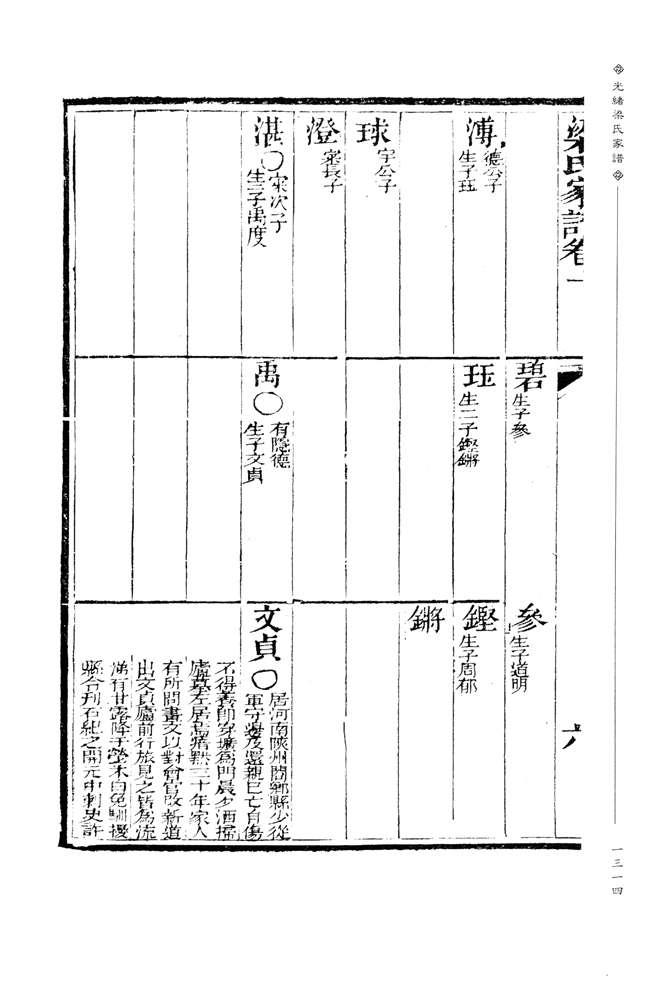 光緒梁氏家譜
一三一四
梁氏家譜卷一
六
溥
德公子
生子珏
球
宇公子
澄
寀長子
湛〇
寀次子
生二子禹度
碧
生子參
珏
生二子鏗鏘
禹〇
有隱德
生子文貞
參
生子道明
鏗
生子周郁
鏘
文貞〇
居河南陝州閿鄉縣少從
軍守邊及還親已亡自傷
不得養即穿壙為門晨夕洒掃
廬墓左居瘖默三十年家人
有所問畫文以對會官改新道
出文貞廬前行旅見之皆為流
涕有甘露降于塋木白兔馴擾
縣令刊石紀之開元中刺史許